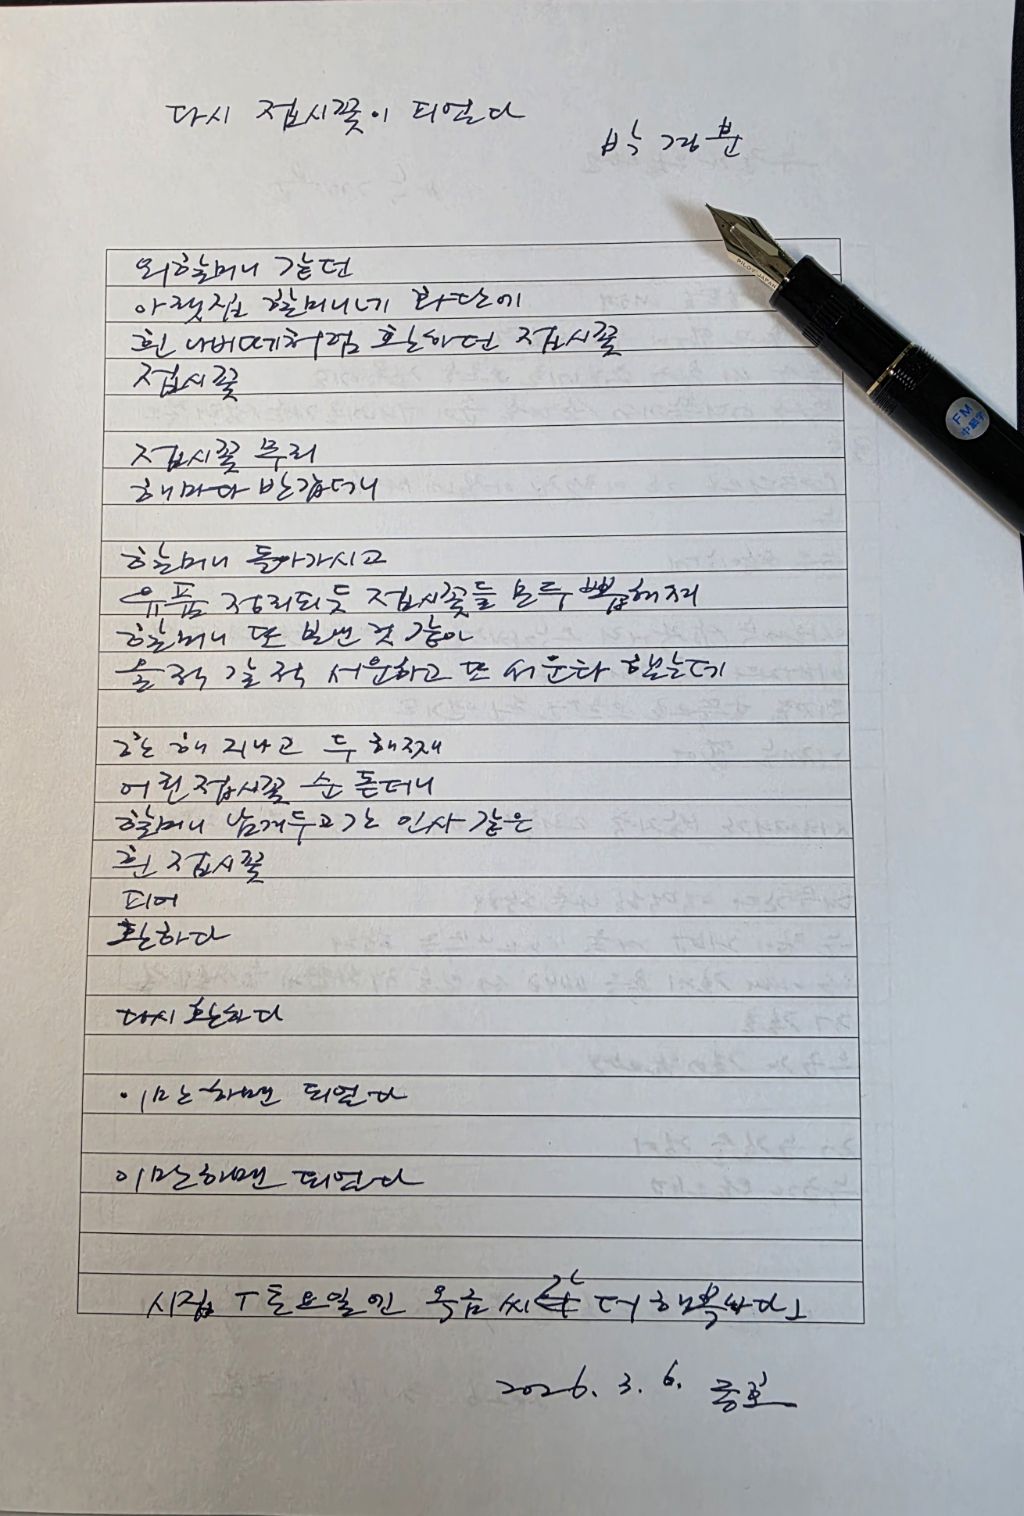 다시 접시꽃이 피었다
박경분
외할머니 같던
아랫집 할머니네 화단에
흰 나비떼처럼 환하던 접시꽃
접시꽃
접시꽃 무리
해마다 반갑더니
할머니 돌아가시고
유품 정리되듯 접시꽃들 모두 뽑혀져
할머니 또 보낸 것 같아
올 적 갈 적 서운하고 또 서운타 했는데
한 해 지나고 두 해째
어린 접시꽃 순 돋더니
할머니 남겨두고 간 인사 같은
흰 접시꽃
피어
환하다
다시 환하다
이만하면 되었다
이만하면 되었다
시집 「토요일엔 옥금 씨가 더 행복하다」
2026. 3. 6.
PILOT JAPAN
FM
中細字